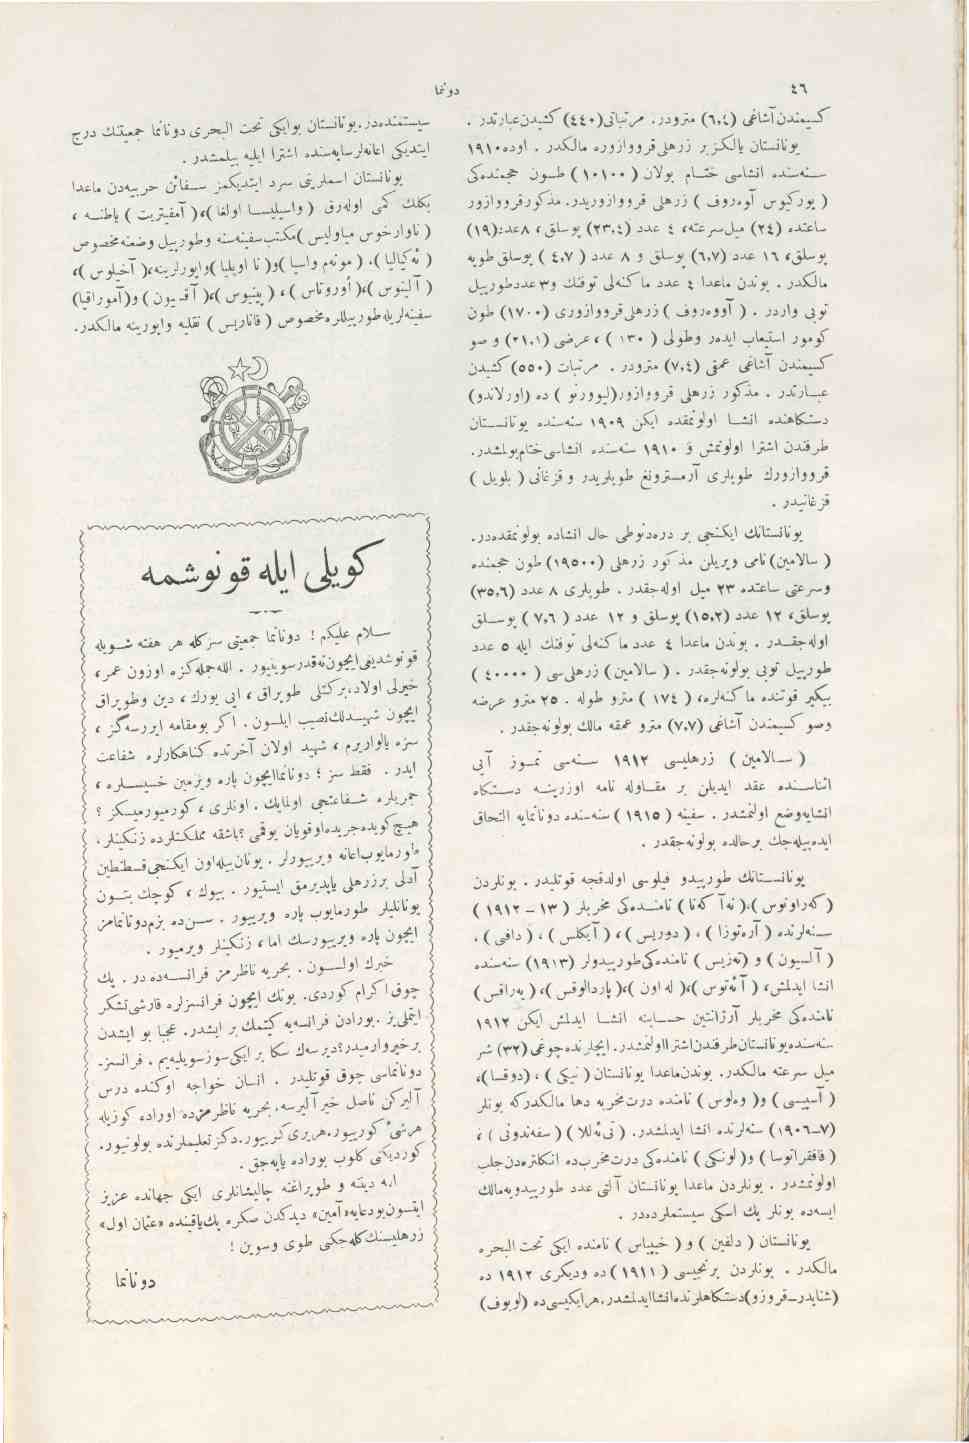 ٤٦
دونما
كسيمندن آشاغى (٦,٤) مترودر. مرتباتى (٤٤٠) كشيدن عبارتدر .
يونانستان يالكز بر زرهلى قرووازوره مالكدر . اوده ١٩١٠
سنه‌سنده انشاسى ختام بولان ( ١٠١٠٠ ) طون حجمنده‌كى
( يورکيوس آوه‌روف ) زرهلى قرووازوريدر. مذكور قرووازور
ساعتده (٢٤) ميل سرعته، ٤ عدد (٢٣,٤) پوسلق، ٨ عدد (١٩)
پوسلق، ١٦ عدد (٦,٧) پوسلق و ٨ عدد ( ٤,٧ ) پوسلق طوپه
مالكدر . بوندن ماعدا ٤ عدد ماكنه‌لى توفنك و ٣ عدد طورپيل
توپى واردر . ( آووه‌روف ) زرهلى قرووازورى (١٧٠٠) طون
كومور استيعاب ايده‌ر وطولى ( ١٣٠ ) ، عرضى (٢١,١) و صو
كسيمندن آشاغى عمقى (٧,٤) مترودر . مرتبات (٥٥٠) كشيدن
عبارتدر . مذكور زرهلى قرووازور (ليوورنو ) ده (اورلاندو)
دستكاهنده انشا اولونمقده ايكن ١٩٠٩ سنه‌سنده يونانستان
طرفندن اشترا اولونمش و ١٩١٠ سنه‌سنده انشاسى ختام بولمشدر.
قرووازورك طوپلرى آرمسترونغ طوپلريدر و قزغانى ( بلويل )
قزغانيدر .
يونانستانك ايكنجى بر دره‌دنوطى حال انشاده بولونمقده‌در.
( سالامين ) نامى ويريلن مذكور زرهلى (١٩٥٠٠) طون حجمنده
وسرعتى ساعتده ٢٣ ميل اوله‌جقدر . طوپلرى ٨ عدد (٣٥,٦)
پوسلق، ١٢ عدد (١٥,٢) پوسلق و ١٢ عدد ( ٧,٦ ) پوسلق
اوله‌جقدر . بوندن ماعدا ٤ عدد ماكنه‌لى توفنك ايله ٥ عدد
طورپيل توپى بولونه‌جقدر . ( سالامين ) زرهلى‌سى ( ٤٠٠٠٠ )
بيكير قوتنده ماكنه‌لره، ( ١٧٤ ) مترو طوله . ٢٥ مترو عرضه
وصو كسيمندن آشاغى (٧,٧) مترو عمقه مالك بولونه‌جقدر .
( سالامين ) زرهليسى ١٩١٢ سنه‌سى تموز آيى
اثناسنده عقد ايديلن بر مقاوله نامه اوزرينه دستكاه
انشايه وضع اولنمشدر . سفينه ( ١٩١٥ ) سنه‌سنده دونانمايه التحاق
ايده‌بيله‌جك بر حالده بولونه‌جقدر .
يونانستانك طورپيدو فيلوسى اولدقجه قوتليدر . بونلردن
( كه‌راونوس )، ( نه‌آ كه‌نا ) نامنده‌كى مخربلر ( ١٣ – ١٩١٢ )
سنه‌لرنده ( آره‌توزا ) ، ( دوريس ) ، ( آيكلس ) ، ( دافنى ) ،
( آلسيون ) و ( ته‌زيس ) نامنده‌كى طورپيدولر (١٩١٣) سنه‌سنده
انشا ايدلمش، ( آئه‌توس )، ( له اون )، ( پاردالوقس )، ( يه‌راقس )
نامنده‌كى مخربلر آرژانتين حسابنه انشا ايدلمش ايكن ١٩١٢
سنه‌سنده يونانستان طرفندن اشترا اولنمشدر. ايچلرنده چوغى (٣٢) شر
ميل سرعته مالكدر. بوندن ماعدا يونانستان ( نيكى ) ، (دوقسا)،
( آسپيسى ) و ( وه‌لوس ) نامنده درت مخربه دها مالكدركه بونلر
(٧–١٩٠٦) سنه‌لرنده انشا ايدلمشدر. ( تى‌ئه‌للا ) ( سفه‌ندونى ) ،
( قاققراتوسا ) و ( لونكى ) نامنده‌كى درت مخرب ده انكلتره‌دن جلب
اولونمشدر . بونلردن ماعدا يونانستان آلتى عدد طورپيدويه مالك
ايسه‌ده بونلر پك اسكى سيستملرده‌در .
يونانستان ( دلفين ) و ( خيپياس ) نامنده ايكى تحت البحره
مالكدر . بونلردن برنجيسى ( ١٩١١ ) ده وديكرى ١٩١٢ ده
(شنايدر–قروزو) دستكاهلرنده انشا ايدلمشدر. هر ايكيسى ده (لوبوف)
سيستمنده‌در. يونانستان بوايكى تحت البحرى دونانما جمعيتنك درج
ايتديكى اعانه‌لر سايه‌سنده اشترا ايليه بيلمشدر .
يونانستان اسملرينى سرد ايتديكمز سفائن حربيه‌دن ماعدا
يكلك كمى اوله‌رق ( واسيليسا اولغا )، ( آمفيتريت ) ياطنه ،
( ناوارخوس مياوليس ) مكتب سفينه‌سنه وطورپيل وضعنه مخصوص
( ئه‌كيالا ) . ( مونه‌م واسيا ) و ( نا اوپليا ) واپورلرينه، ( آخيلوس )،
( آلينوس )، ( أوروتاس ) ، ( پينيوس )، ( آقه‌يون ) و ( آموراقيا)
سفينه‌لريله طورپيللره مخصوص ( قاناريس ) نقليه واپورينه مالكدر.
كويلى ايله قونوشمه
سلام عليكم ! دونانما جمعيتى سزكله هر هفته شويله
قونوشديغى ايچون نه‌قدر سوينيور . الله جمله‌كزه اوزون عمر ،
خيرلى اولاد ، بركتلى طوپراق ، ايى يورك ، دين وطوپراق
ايچون شهيدلك نصيب ايلسون . اكر بومقامه ايررسه‌كز ،
سزه يالواريرم ، شهيد اولان آخرتده كناهكارلره شفاعت
ايدر . فقط سز ؛ دونانما ايچون پاره ويرمين خسيسلره ،
جمريلره شفاعتجى اولمايك . اونلرى ، كورميورميسكز ؟
هيچ كويده جريده اوقويان يوقمى ؟ باشقه مملكتلرده زنكينلر،
طورمايوب اعانه ويرييورلر . يونان بيله اون ايكنجى قسطنطين
آدلى بر زرهلى ياپديرمق ايستيور . بيوك ، كوچك بتون
يونانليلر طورمايوب پاره ويرييور . سن‌ده بزم دونانمامز
ايچون پاره ويرييورسك اما ، زنكينلر ويرميور .
خبرك اولسون . بحريه ناظرمز فرانسه‌ده در . پك
چوق اكرام كوردى. بونك ايچون فرانسزلره قارشى تشكر
ايتملى‌يز . بورادن فرانسه‌يه كيتمك بر ايشدر. عجبا بو ايشدن
بر خير وارميدر؟ ديرسه‌ك سكا بر ايكى سوز سويليه‌يم . فرانسز
دونانماسى چوق قوتليدر . انسان خواجه اوكنده درس
آليركن ناصل خير آليرسه، بحريه ناظرمزده اوراده كوزيله
هرشئ كورييور. هريرى كزييور. دكز تعليملرنده بولونيور.
كورديكنى كلوب بوراده ياپه‌جق .
ايه دينه و طوپراغنه چاليشانلرى ايكى جهانده عزيز
ايتسون بودعايه «آمين» ديدكدن صكره پك ياقينده «عثمان اول»
زرهليسنك كله‌جكنى طوى وسوين !
دونانما